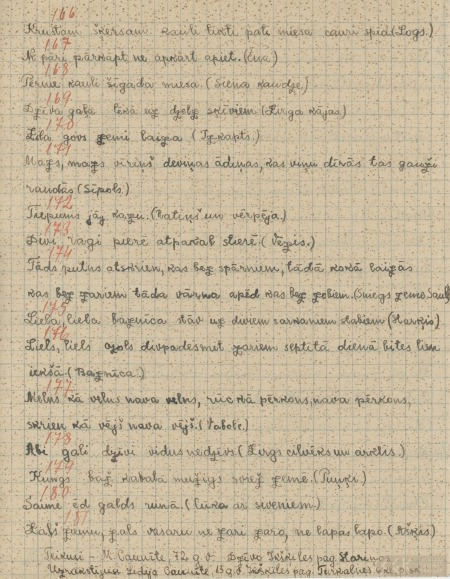 166
Krustām šķērsām kauli likti pati miesa cauri spīd (Logs.)
167
Ne pāri pārkāpt ne apkārt apiet. (Čūs.)
168
Pērnie kauli šīgada miesa (Siena kaudze)
169
Dzīva gaļa lēkā uz dzelz sķīviem (Zirga kājas.)
170
Liela govs zemi laiza (Izkapts.)
171
Mazs, mazs vīriņš deviņas ādiņas, kas viņu dīrās tas gauži
raudās (Sīpols.)
172
Tiepums jāj kazu. (Ratiņš un vērpēja.)
173
Divi ragi pierē atpakaļ stierē. (Vēzis.)
174
Tāds putns atskrien, kas bez spārniem, tādā kokā laižās
kas bez zariem tāda vārna apēd kas bez zobiem. (Sniegs zeme Saule)
175
Liela, liela baznīca stāv uz diviem sarkaniem stabiem
176
Liels, liels ozols divpadesmit zariem septītā dienā bites lien
iekšā. (Baznīca.)
177
Melns kā velns nava velns, rūc kā pērkons, nava pērkons,
skrien kā vējš nava vējš. (Vabole.)
178
Abi gali dzīvi vidus nedzīvs (Zirgs cilvēks un arklis.)
179
Kungs bez kakala mužīgs sviež zemē. (Puņķi.)
180
Saime ēd galds runā. (Cūka ar siveniem.)
181
Kails ziemu, pals vasaru ne zari zaro, ne lapas lapo. (Ašķis)
Teikusi - M. Caunīte, 72 g.v. Dzīvo Ikšķiles pag.
Uzrakstījusi Lidija Caunīte, 13 g.v. Ikšķiles pag. Tīnūžu